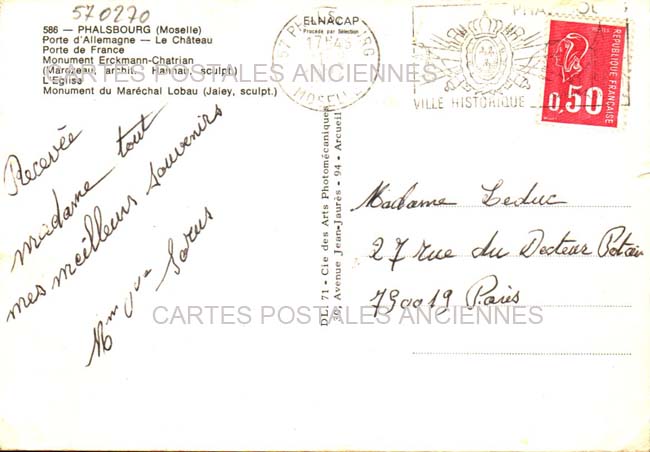 570270
586 — PHALSBOURG (Moselle)
Porte d'Allemagne — Le Château
Porte de France
Monument Erckmann-Chatrian
(Marozeau, archit. - Hannau, sculpt.)
L'Eglise
Monument du Maréchal Lobau (Jaley, sculpt.)
ELNACAP
Procédé par Sélection
57 PHALSBOURG
17H45
MOSELLE
VILLE HISTORIQUE
REPUBLIQUE FRANÇAISE
0,50
CARTES POSTALES ANCIENNES
Recevée
madame tout
mes meilleurs souvenirs
Mm Vve Sarus
DL. 71 - Cie des Arts Photomécaniques
39, Avenue Jean-Jaurès - 94 - Arcueil
Madame Leduc
27 rue du Docteur Potain
790019 Paris
CARTES POSTALES ANCIENNES